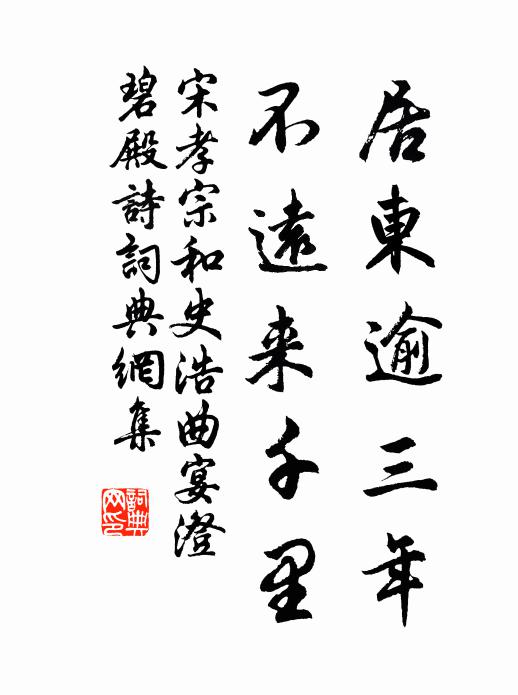 居東逾三年
不遠来千里
宋孝宗和史浩曲宴澄
碧殿詩詞典網集
詞典网印